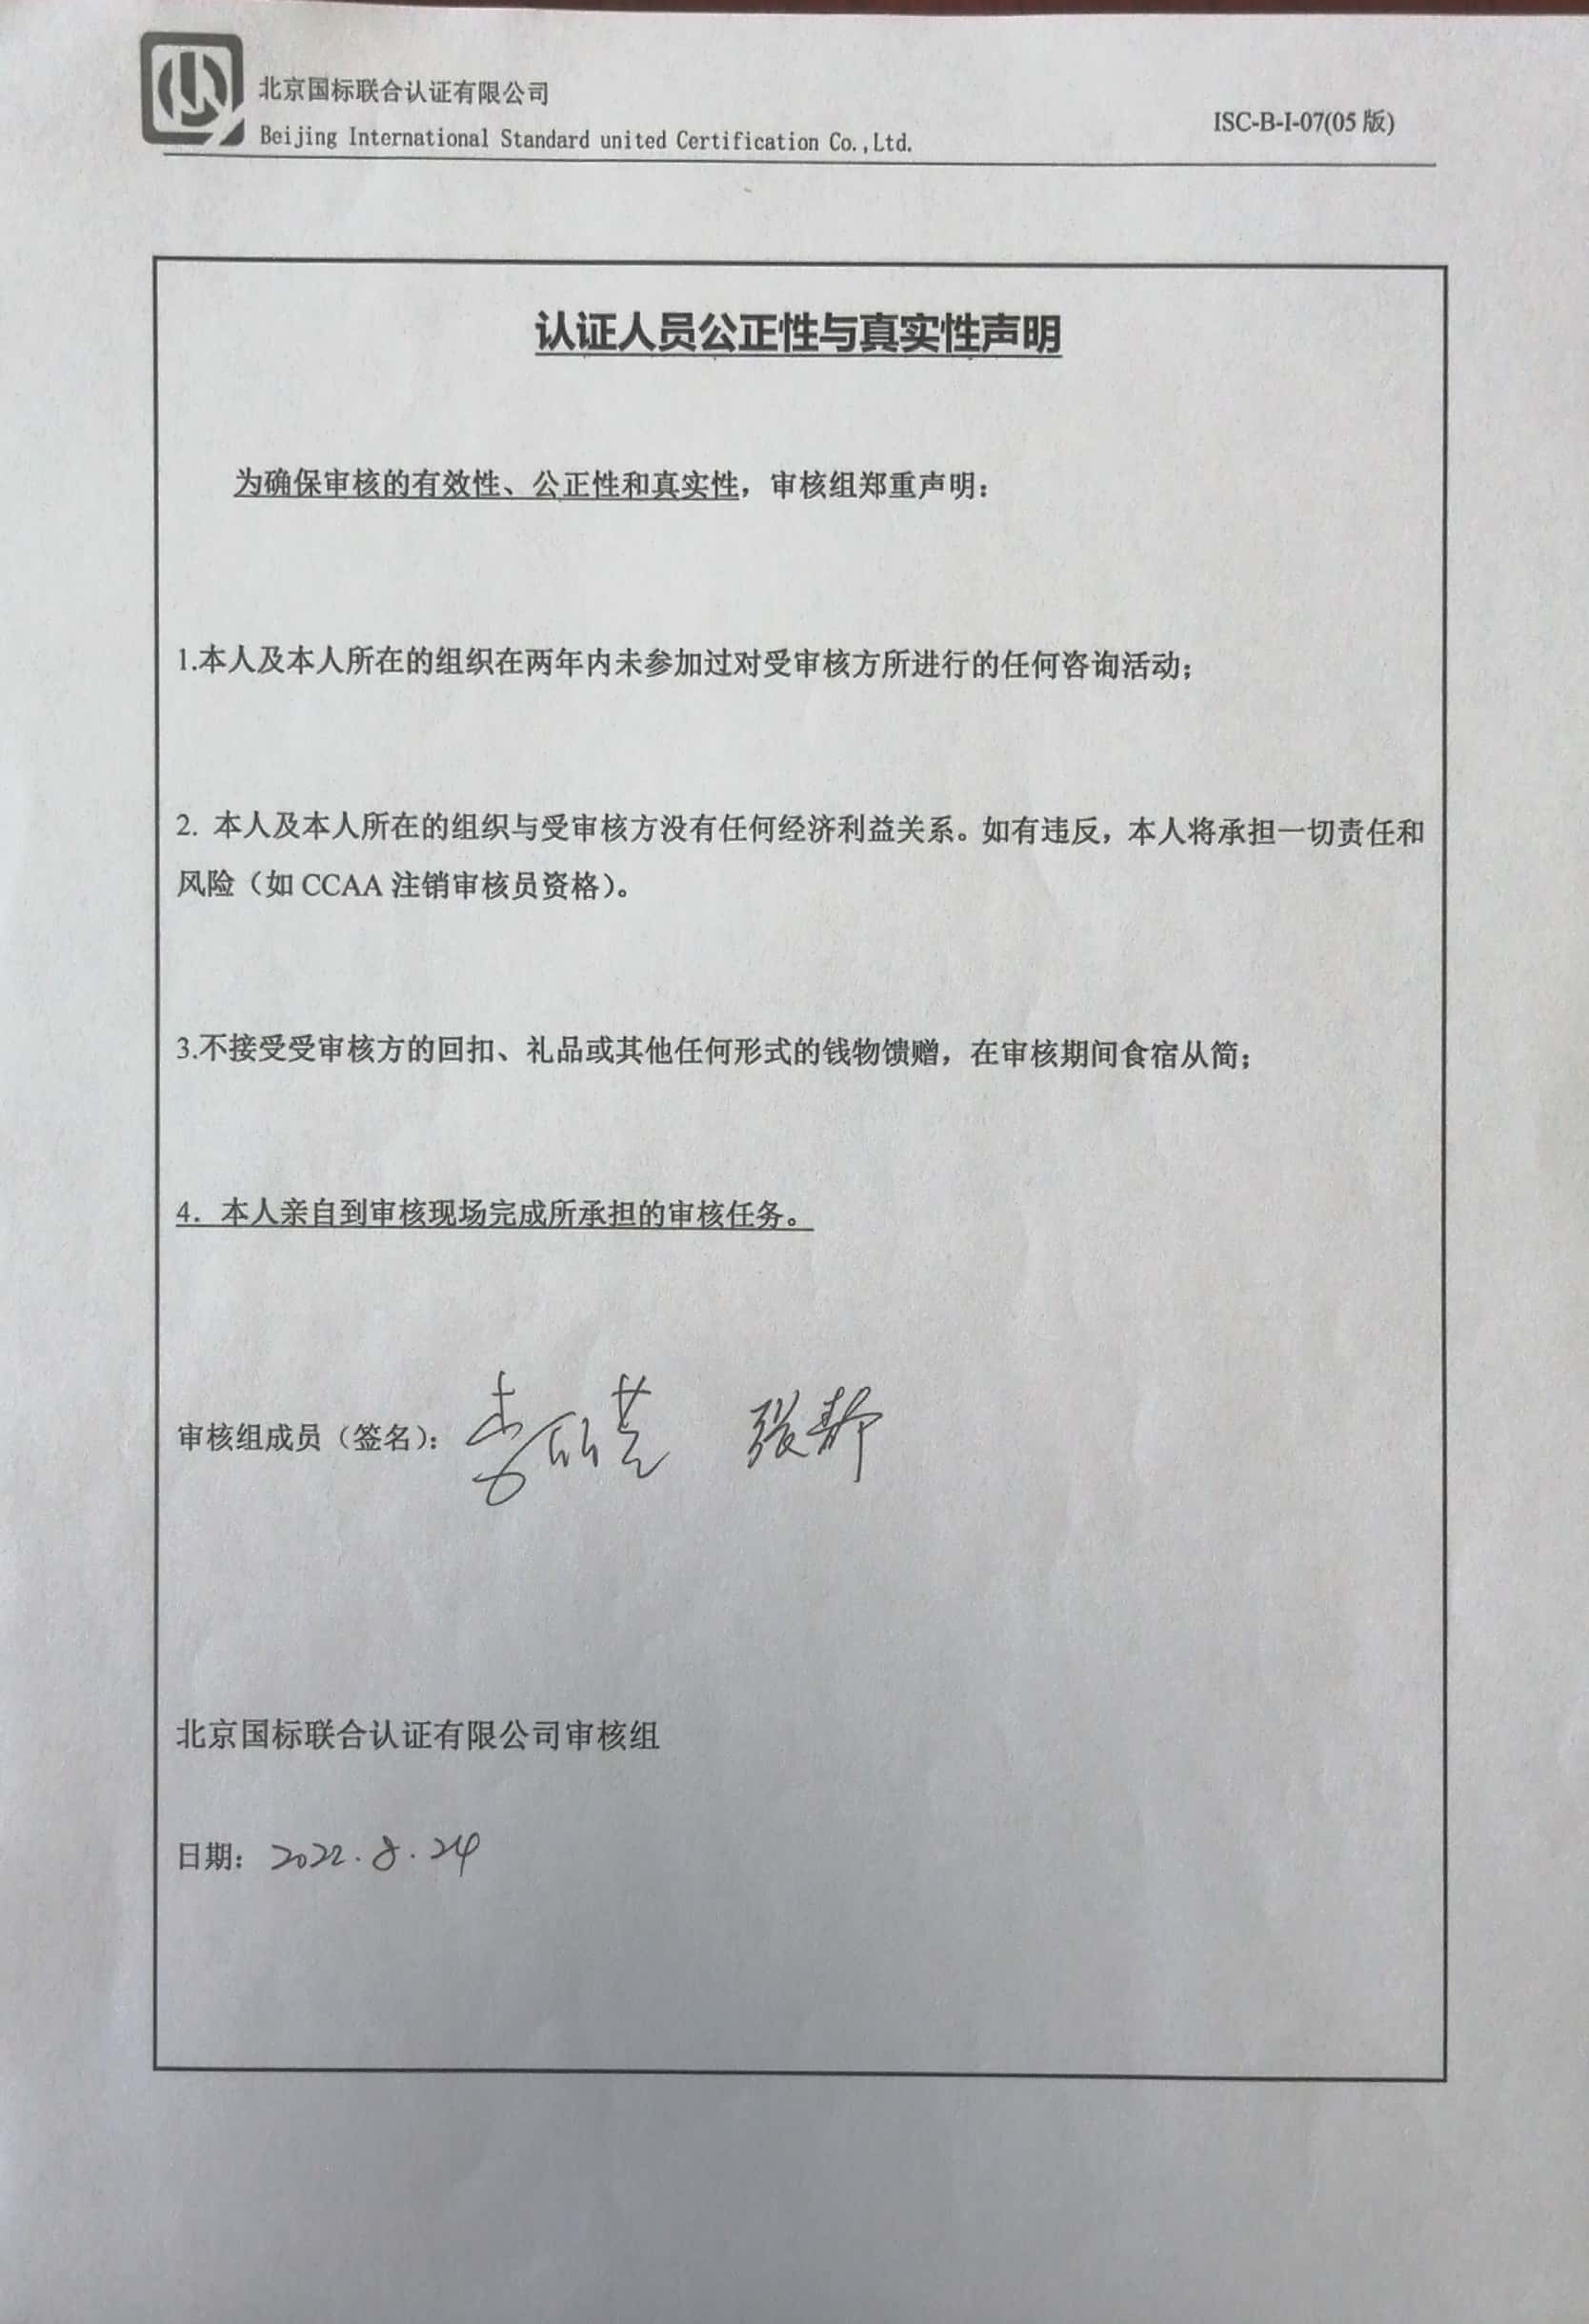 北京国标联合认证有限公司
Beijing International Standard united Certification Co.,Ltd.
ISC-B-I-07(05 版)
认证人员公正性与真实性声明
为确保审核的有效性、公正性和真实性，审核组郑重声明：
1.本人及本人所在的组织在两年内未参加过对受审核方所进行的任何咨询活动；
2. 本人及本人所在的组织与受审核方没有任何经济利益关系。如有违反，本人将承担一切责任和
风险（如 CCAA 注销审核员资格）。
3.不接受受审核方的回扣、礼品或其他任何形式的钱物馈赠，在审核期间食宿从简；
4. 本人亲自到审核现场完成所承担的审核任务。
审核组成员（签名）： 张静
北京国标联合认证有限公司审核组
日期：2022.8.24